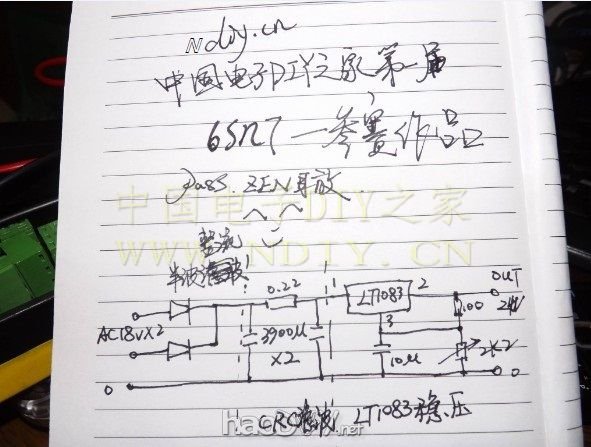 Ndiy.cn
中国电子DIY之家第一届
6SN7—参赛作品
Pass ZEN耳放
中国电子DIY之家
WWW.NDIY.CN
整流
半波
0.22
LT1083
2
OUT
24V
AC18V×2
3900μ
×2
3
10μ
100
2K2
0
0
CRC滤波
LT1083稳压
haoDIY.net